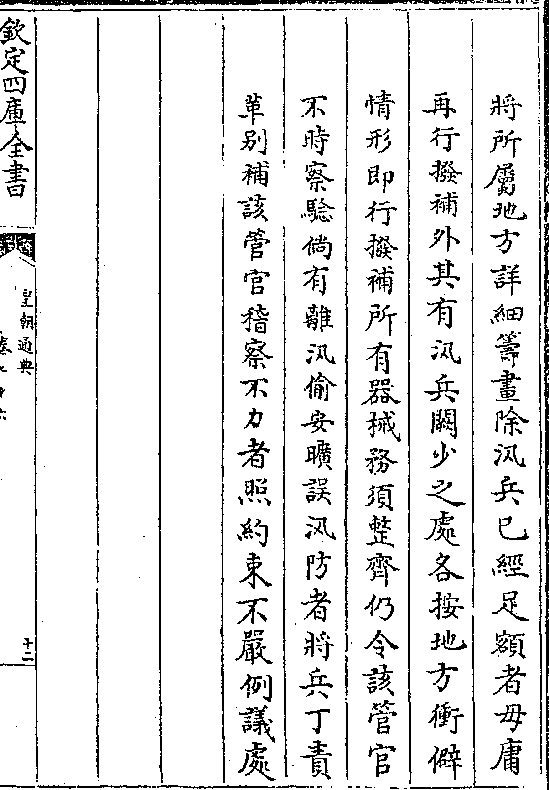 將所屬地方詳細籌畫除汛兵已經足額者毋庸
再行撥補外其有汛兵闕少之處各按地方衝僻
情形即行撥補所有器械務須整齊仍令該管官
不時察驗倘有離汛偷安曠誤汛防者將兵丁責
革别補該管官稽察不力者照約束不嚴例議處
欽定四庫全書
皇朝通典
十二